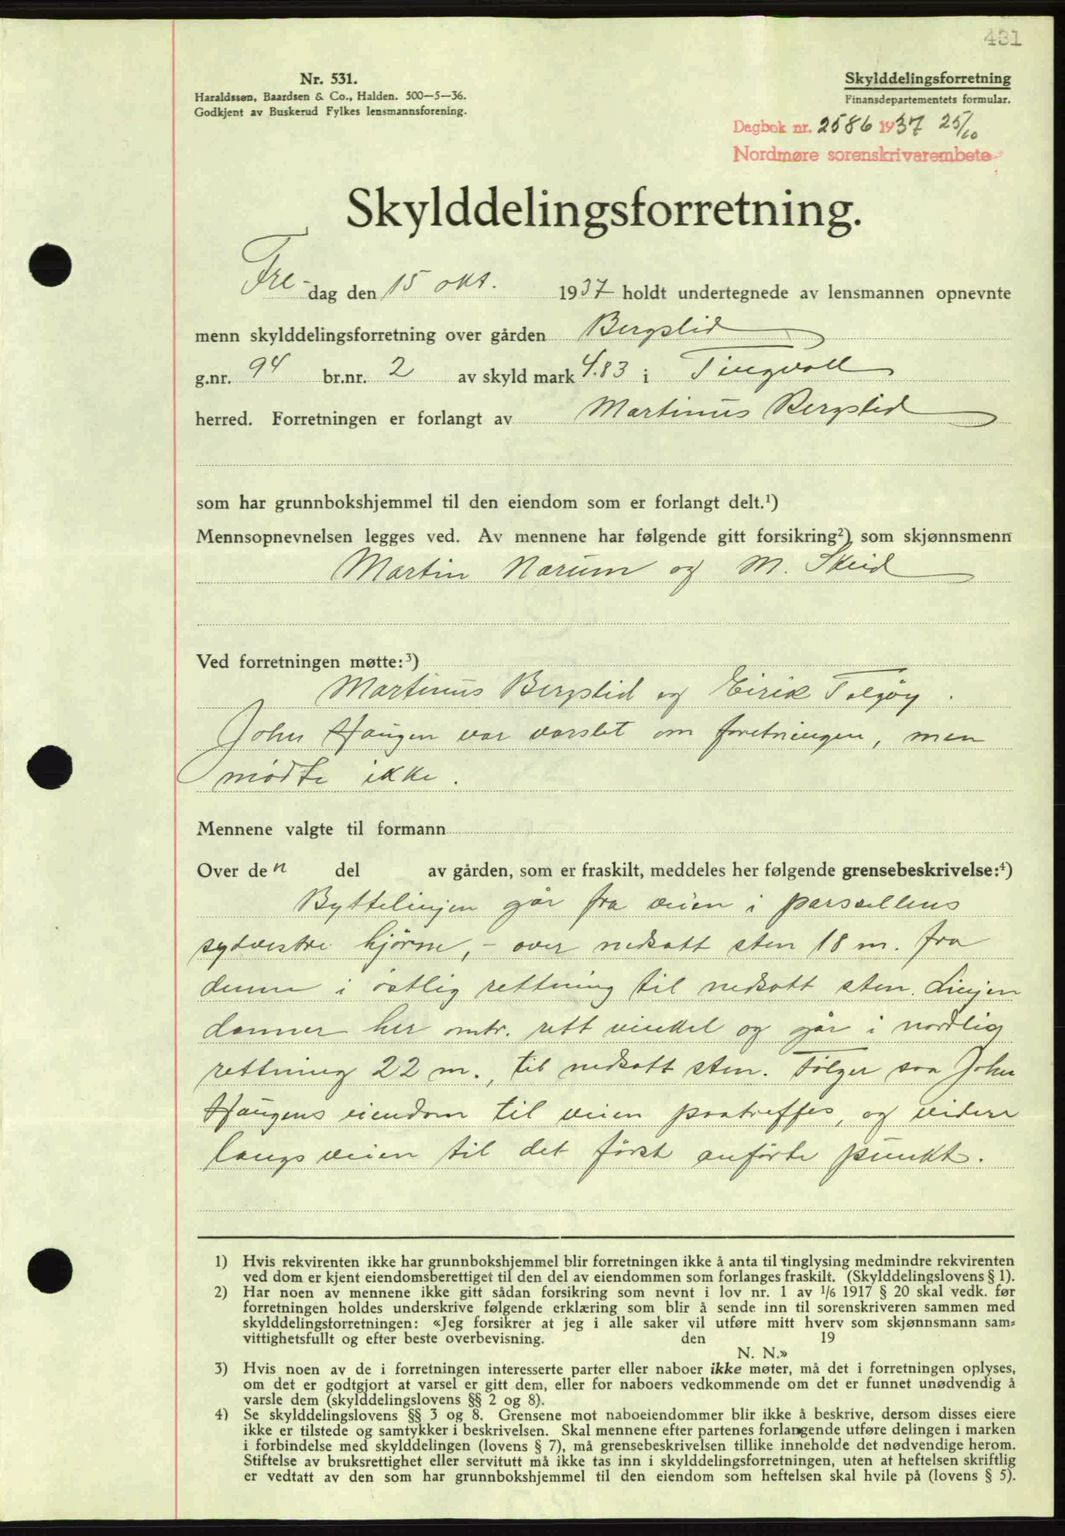 431
Nr. 531.
Haraldssøn, Baardsen & Co., Halden. 500—5—36.
Godkjent av Buskerud Fylkes lensmannsforening.
Skylddelingsforretning
Finansdepartementets formular.
Dagbok nr. 2586 1937 25/10
Nordmøre sorenskrivarembete
Skylddelingsforretning.
Fre-dag den 15 okt. 1937 holdt undertegnede av lensmannen opnevnte
menn skylddelingsforretning over gården Bergslid
g.nr. 94 br.nr. 2 av skyld mark 4.83 i Tingvoll
herred. Forretningen er forlangt av Martinus Bergslid
som har grunnbokshjemmel til den eiendom som er forlangt delt.¹)
Mennsopnevnelsen legges ved. Av mennene har følgende gitt forsikring²) som skjønnsmenn
Martin Narum og M. Skeid
Ved forretningen møtte:³)
Martinus Bergslid og Eirik Tølgøy.
John Haugen var varslet om forretningen, men
mødte ikke.
Mennene valgte til formann
Over den del av gården, som er fraskilt, meddeles her følgende grensebeskrivelse:⁴)
Byttelinjen går fra veien i parsellens
sydvestre hjørne, - over nedsatt sten 18 m. fra
denne i østlig rettning til nedsatt sten. Linjen
danner her omtr. rett vinkel og går i nordlig
rettning 22 m., til nedsatt sten. Følger saa John
Haugens eiendom til veien paatreffes, og videre
langs veien til det først anførte punkt.
1) Hvis rekvirenten ikke har grunnbokshjemmel blir forretningen ikke å anta til tinglysing medmindre rekvirenten
ved dom er kjent eiendomsberettiget til den del av eiendommen som forlanges fraskilt. (Skylddelingslovens § 1).
2) Har noen av mennene ikke gitt sådan forsikring som nevnt i lov nr. 1 av 1/6 1917 § 20 skal vedk. før
forretningen holdes underskrive følgende erklæring som blir å sende inn til sorenskriveren sammen med
skylddelingsforretningen: «Jeg forsikrer at jeg i alle saker vil utføre mitt hverv som skjønnsmann sam-
vittighetsfullt og efter beste overbevisning. den 19
N. N.»
3) Hvis noen av de i forretningen interesserte parter eller naboer ikke møter, må det i forretningen oplyses,
om det er godtgjort at varsel er gitt dem, eller for naboers vedkommende om det er funnet unødvendig å
varsle dem (skylddelingslovens §§ 2 og 8).
4) Se skylddelingslovens §§ 3 og 8. Grensene mot naboeiendommer blir ikke å beskrive, dersom disses eiere
ikke er tilstede og samtykker i beskrivelsen. Skal mennene efter partenes forlangende utføre delingen i marken
i forbindelse med skylddelingen (lovens § 7), må grensebeskrivelsen tillike inneholde det nødvendige herom.
Stiftelse av bruksrettighet eller servitutt må ikke tas inn i skylddelingsforretningen, uten at heftelsen skriftlig
er vedtatt av den som har grunnbokshjemmel til den eiendom som heftelsen skal hvile på (lovens § 5).